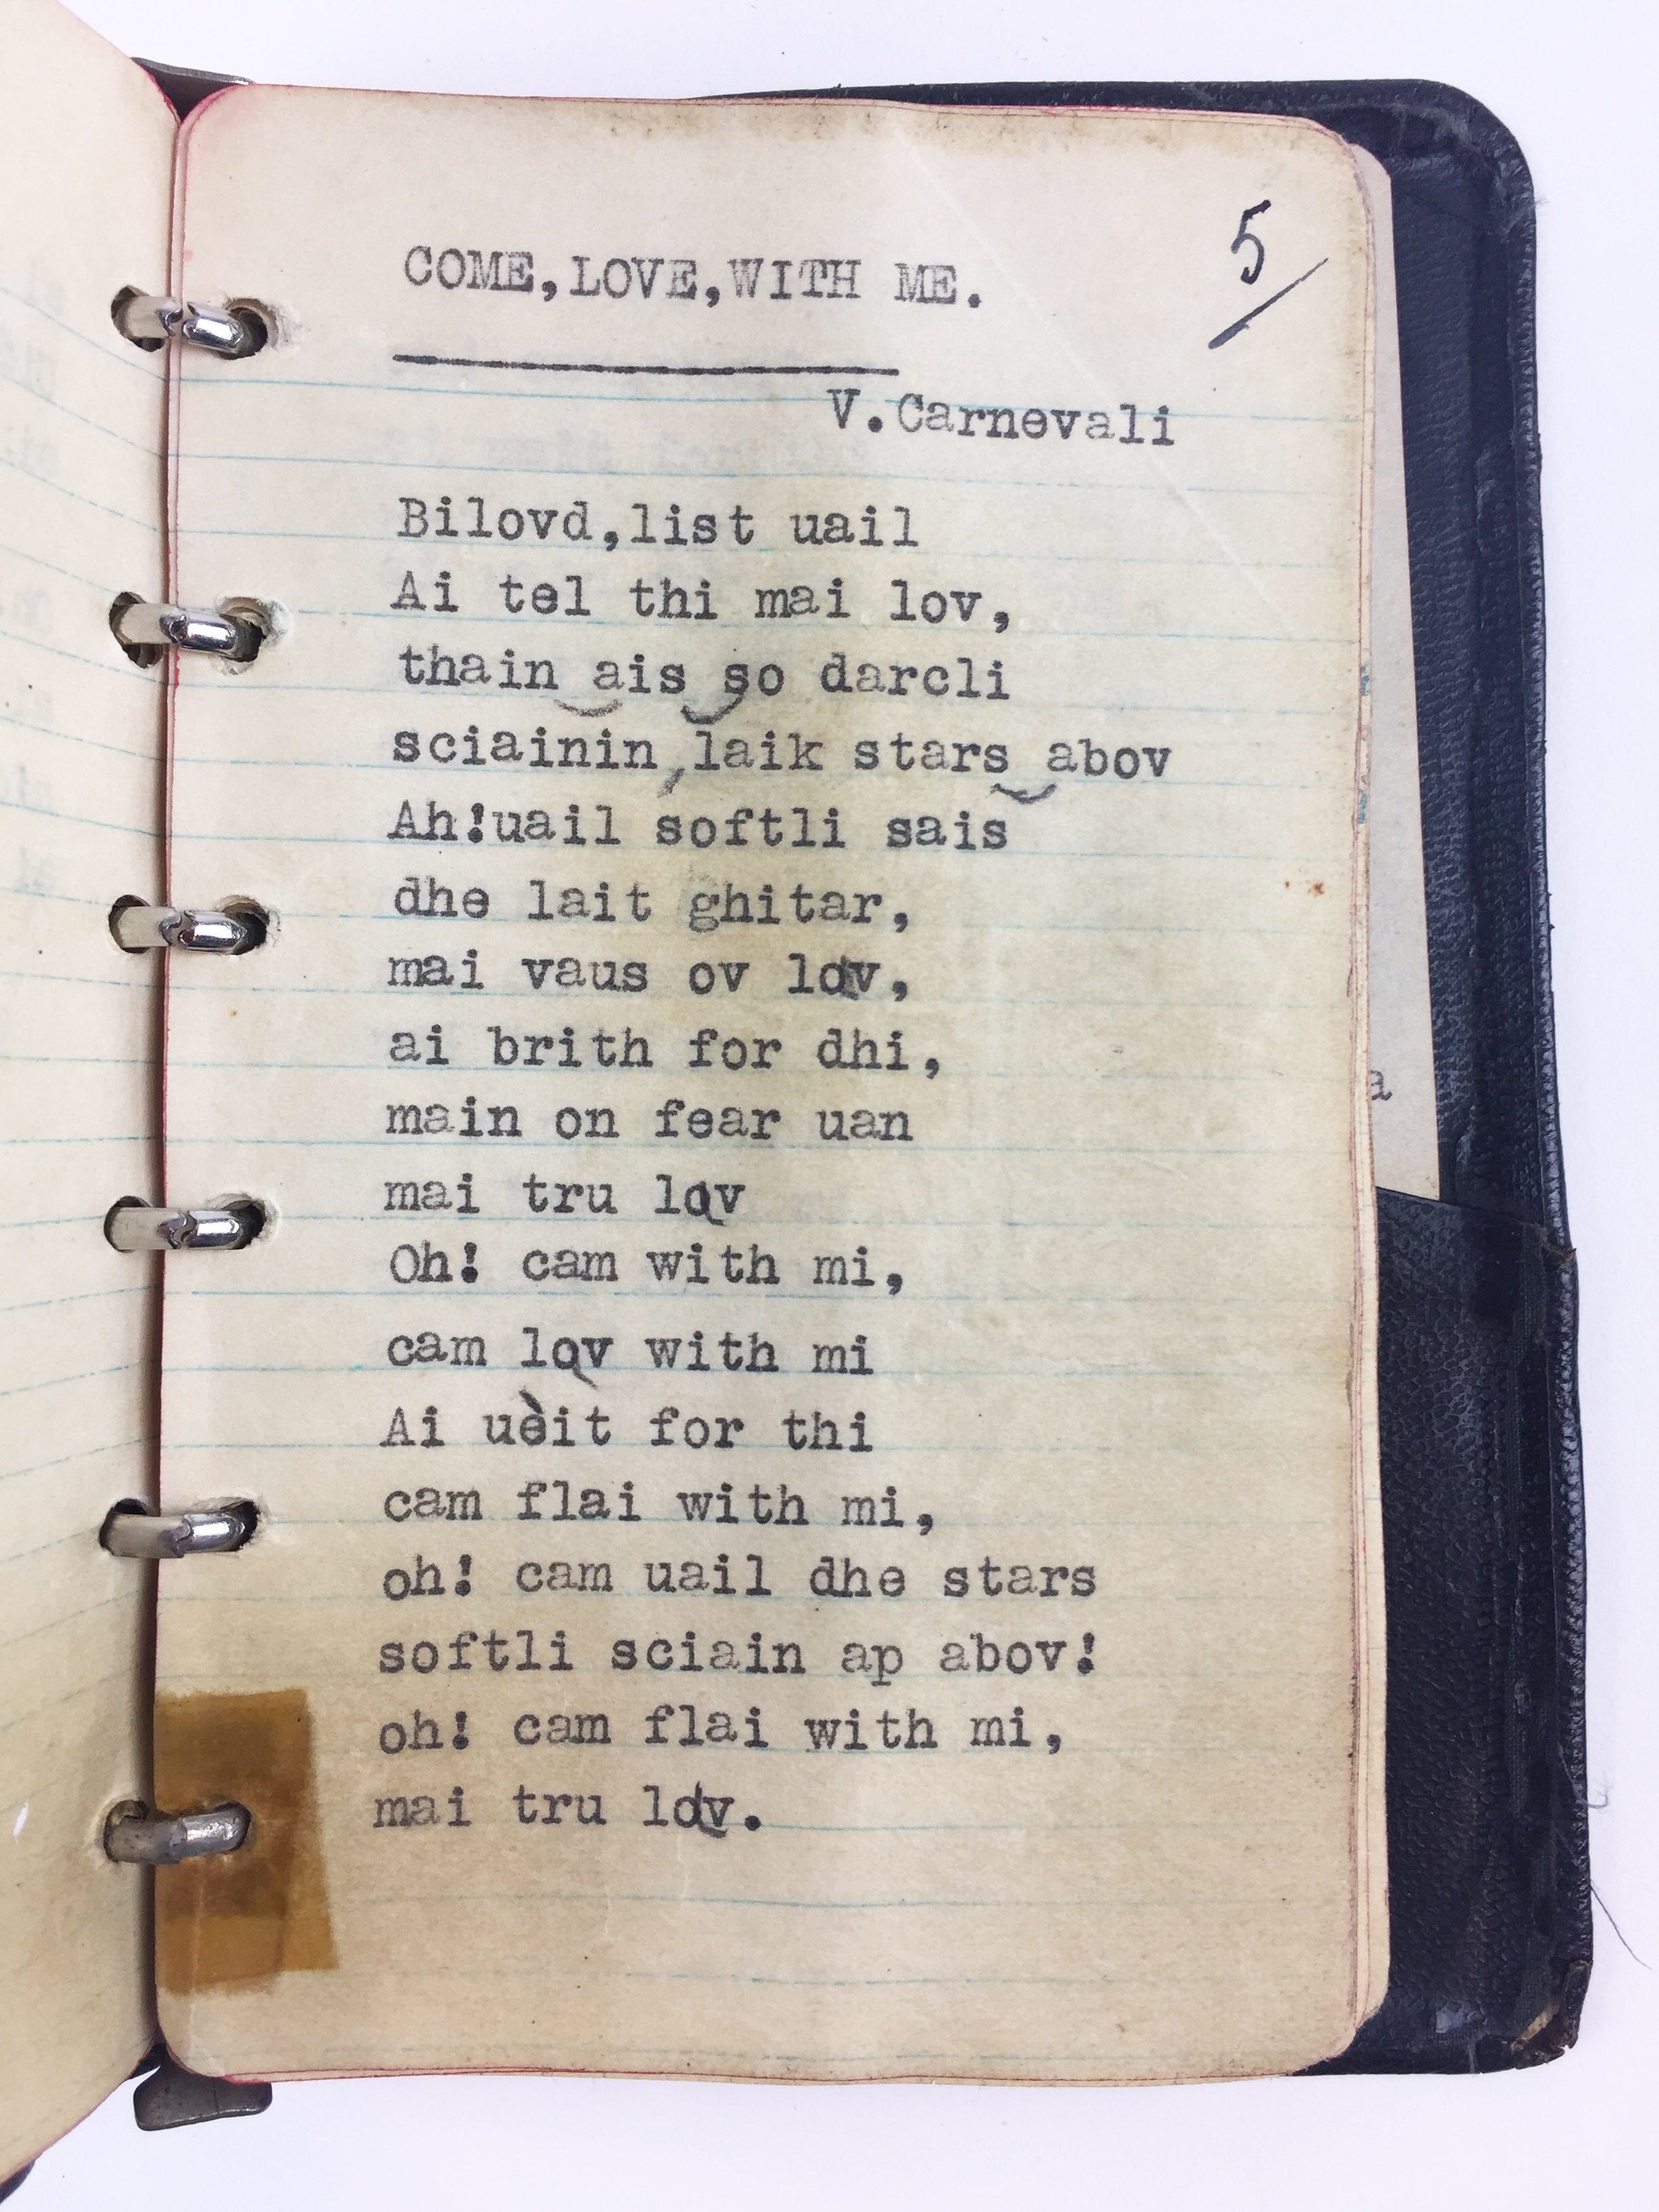 5
COME,LOVE,WITH ME.
V.Carnevali
Bilovd,list uail
Ai tel thi mai lov,
thain ais so darcli
sciainin,laik stars abov
Ah!uail softli sais
dhe lait ghitar,
mai vaus ov lov,
ai brith for dhi,
main on fear uan
mai tru lov
Oh! cam with mi,
cam lov with mi
Ai uèit for thi
cam flai with mi,
oh! cam uail dhe stars
softli sciain ap abov!
oh! cam flai with mi,
mai tru lov.
a